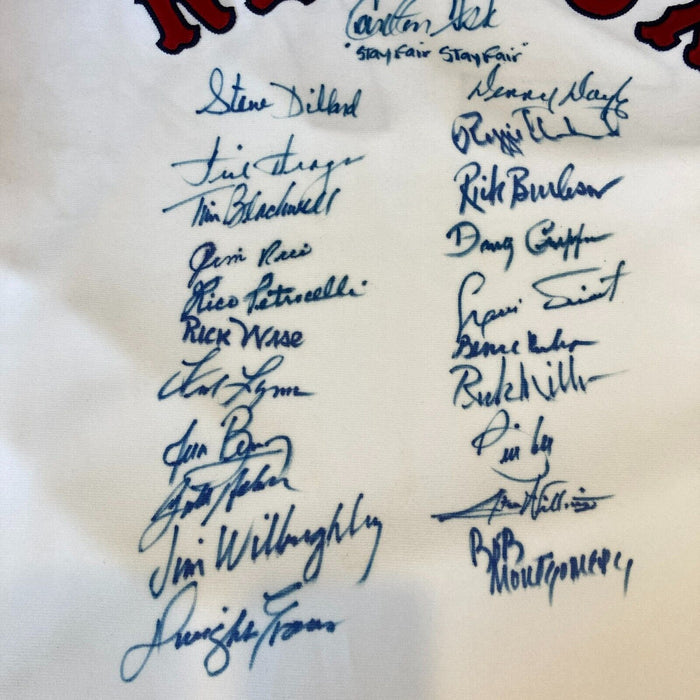 Carlton Fisk
"Stay Fair Stay Fair"
Steve Dillard
Denny Doyle
Reggie
Dick Drago
Tim Blackwell
Rick Burleson
Jim Rice
Doug Griffin
Rico Petrocelli
Luis Tiant
Rick Wise
Bernie Carbo
Fred Lynn
Rick Miller
Jim Burton
Bill Lee
Jim Willoughby
Bob
Montgomery
Dwight Evans